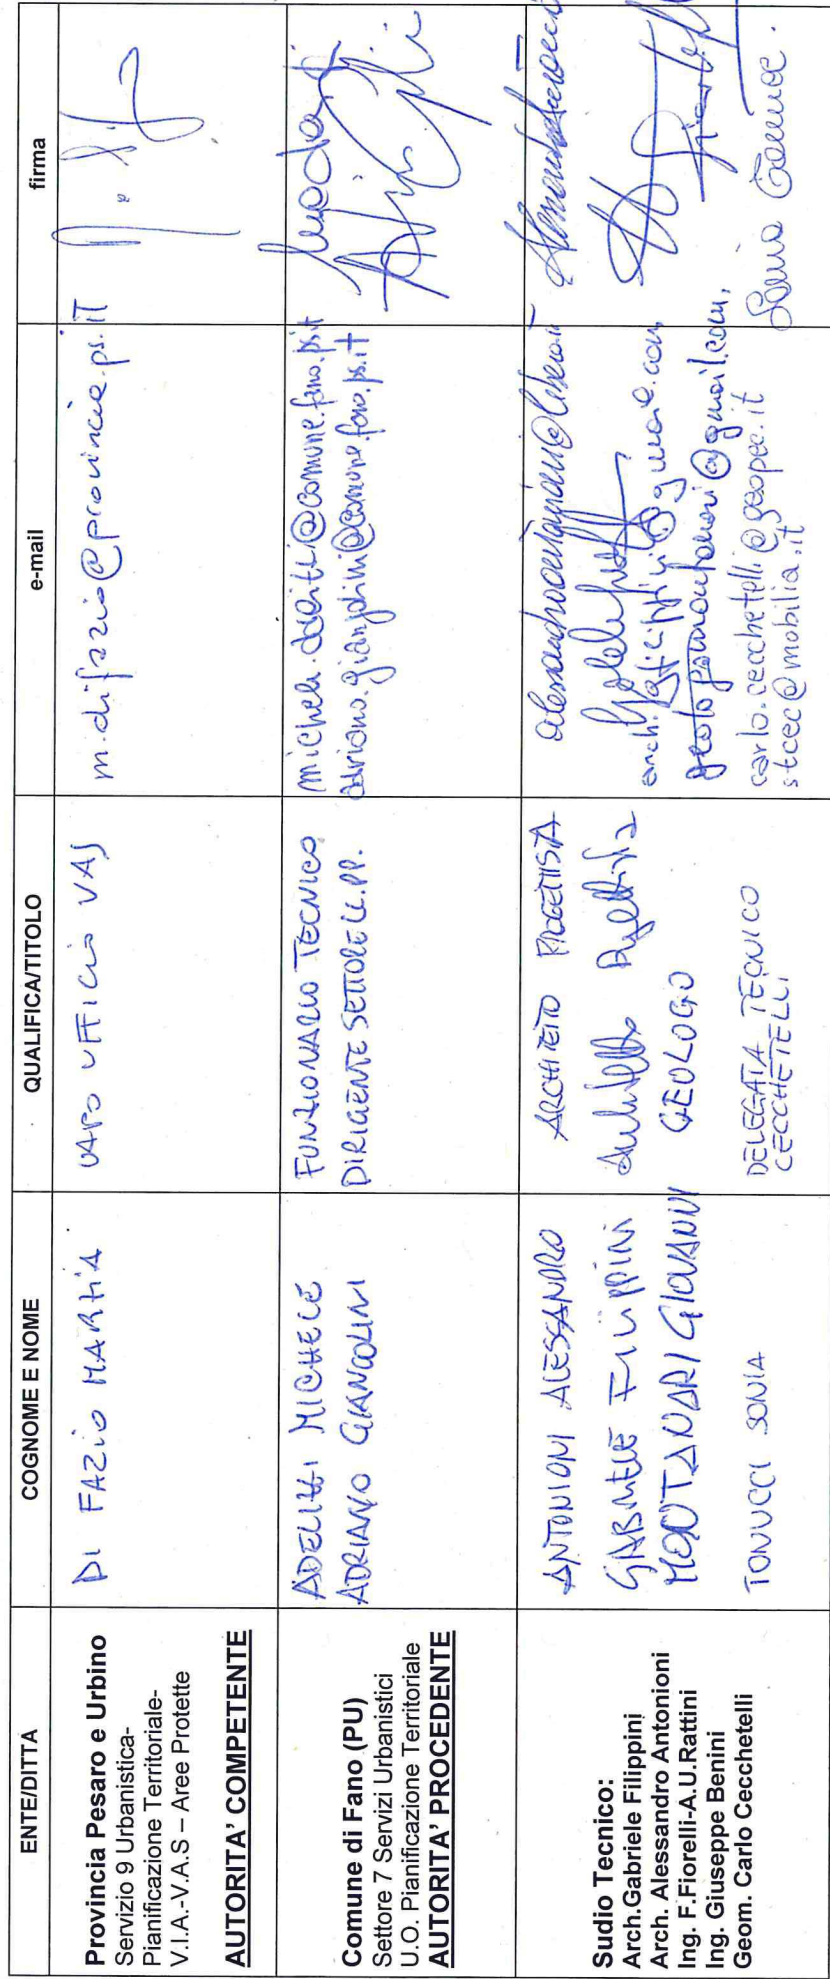 ENTE/DITTA COGNOME E NOME QUALIFICA/TITOLO e-mail firma
Provincia Pesaro e Urbino
Servizio 9 Urbanistica-
Pianificazione Territoriale-
V.I.A.-V.A.S – Aree Protette
AUTORITA' COMPETENTE
DI FAZIO MARTIA
UFFICIO VAS
m.difazio@provincia.ps.it
Comune di Fano (PU)
Settore 7 Servizi Urbanistici
U.O. Pianificazione Territoriale
AUTORITA' PROCEDENTE
ADELIZZI MICHELE
ADRIANO GIANGOLINI
FUNZIONARIO TECNICO
DIRIGENTE SETTORE LL.PP.
adriano.giangolini@comune.fano.ps.it
Sudio Tecnico:
Arch.Gabriele Filippini
Arch. Alessandro Antonioni
Ing. F.Fiorelli-A.U.Rattini
Ing. Giuseppe Benini
Geom. Carlo Cecchetelli
ANTONIONI ALESSANDRO
GABRIELE FILIPPINI
MONTANARI GIOVANNI
TONUCCI SONIA
ARCHITETTO PROGETTISTA
GEOLOGO
DELEGATA TECNICO
CECCHETELLI
carlo.cecchetelli@geopec.it
stcec@mobilia.it